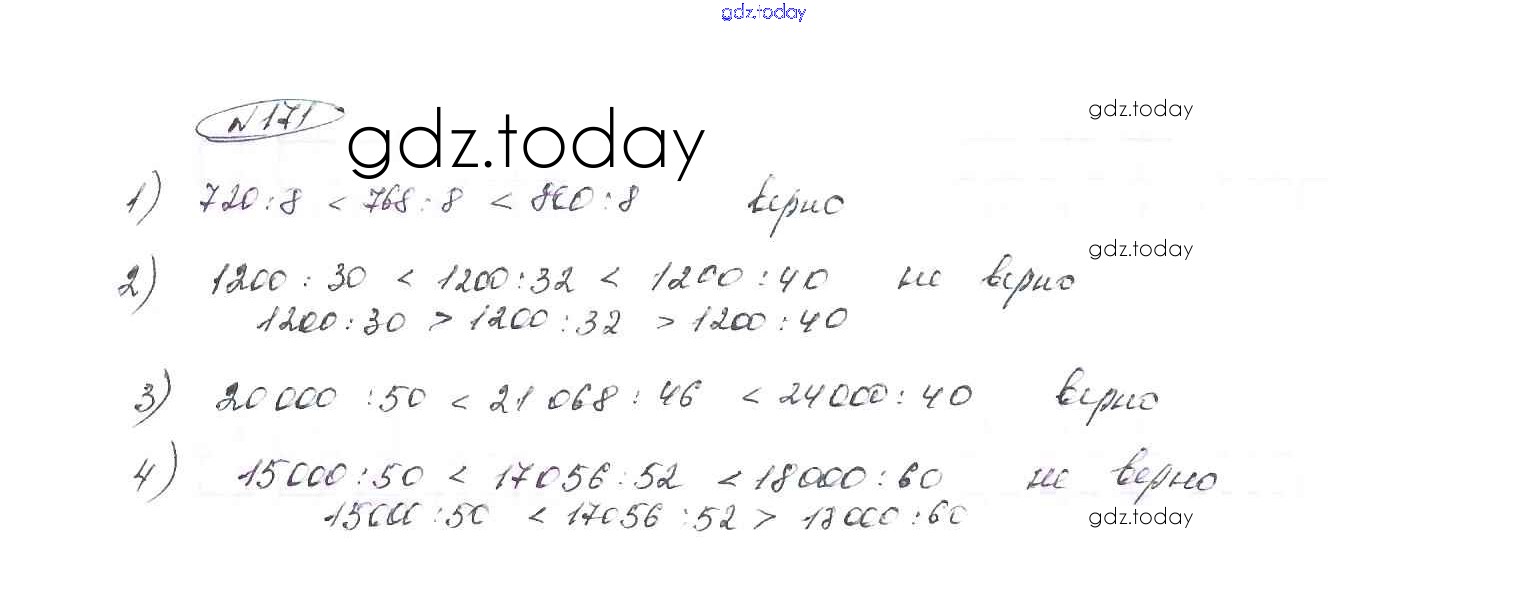 gdz.today
N 171
gdz.today
gdz.today
1) 720 : 8 < 768 : 8 < 800 : 8 верно
gdz.today
2) 1200 : 30 < 1200 : 32 < 1200 : 40 не верно
1200 : 30 > 1200 : 32 > 1200 : 40
3) 20 000 : 50 < 21 068 : 46 < 24000 : 40 верно
4) 15000 : 50 < 17056 : 52 < 18000 : 60 не верно
15000 : 50 < 17056 : 52 > 18000 : 60
gdz.today